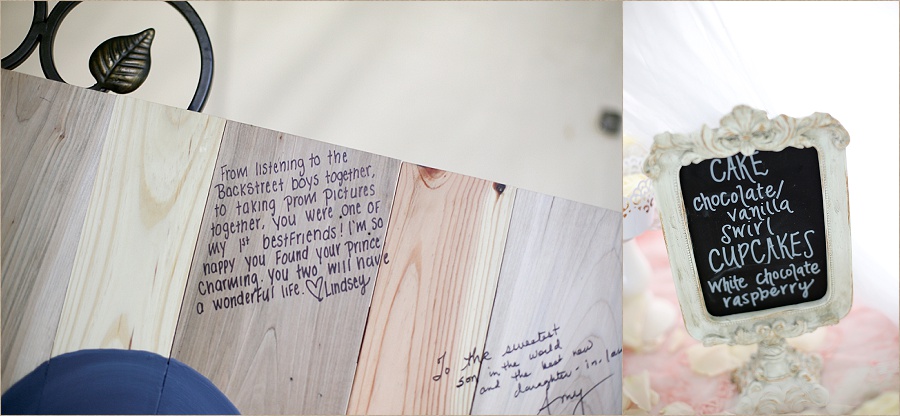 From listening to the
Backstreet boys together,
to taking Prom Pictures
together, you were one of
my 1st bestfriends! I'm so
happy you found your Prince
charming. you two will have
a wonderful life. ♡Lindsey
To the sweetest
son in the world
and the best new
daughter-in-law
Amy
CAKE
chocolate/
vanilla
swirl
CUPCAKES
white chocolate
raspberry